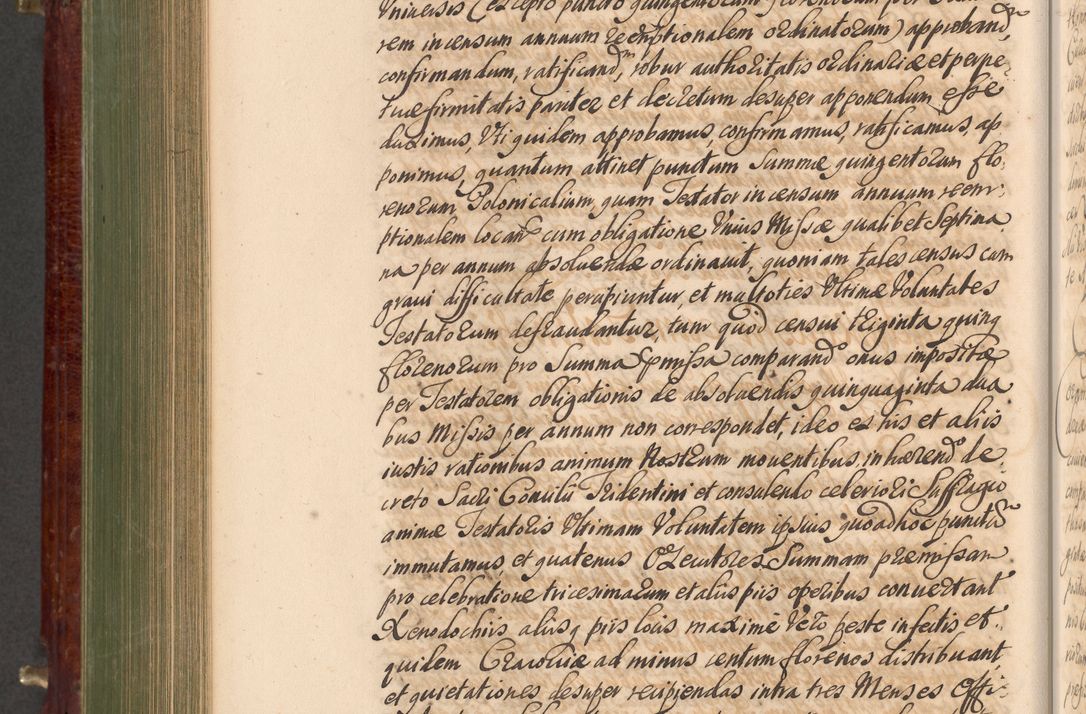 Universis (excepto puncto quingentorum florenorum per
rem in censum annuum reemptionalem ordinatorum) approband,
confirmandum, ratificandm, robur authoritatis ordinariæ et perpe-
tuæ firmitatis pariter et decretum desuper apponendum esse
duximus, Uti quidem approbamus, confirmamus, ratificamus, ap
ponimus, quantum attinet punctum Summæ quingentorum flo-
renorum Polonicalium, quam Testator in censum annuum reem-
ptionalem locare cum obligatione Unius Missæ qualibet Septima
na per annum absoluendæ ordinauit, quoniam tales census cum
graui difficultate percipiuntur, et multoties Ultimæ Voluntates
Testatorum defraudantur, tum quod censui triginta quinq
florenorum pro Summa præmissa comparando onus impositæ
per Testatorem obligationis de absoluendis quinquaginta dua
bus Missis per annum non correspondet, ideo ex his et aliis
iustis rationibus animum Nostrum mouentibus, inhærendo de
creto Sacri Concilii Tridentini et consulendo celeriori Suffragio
animæ Testatoris Ultimam Voluntatem ipsius quoad hoc punctum
immutamus et quatenus Executores Summam præmissam
pro celebratione tricesimarum et aliis piis operibus conuertant
Xenodochiis aliisq piis locis maxime Vero peste infectis et
quidem Cracoviæ ad minus centum florenos distribuant
et quietationes desuper recipiendas intra tres Menses Offi-